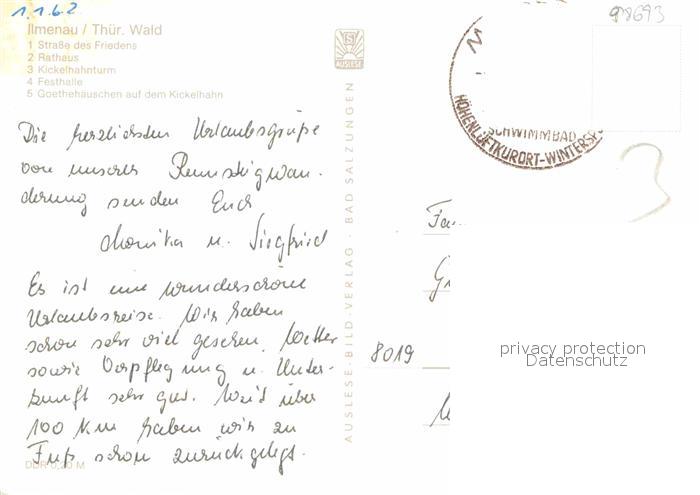 1.1.62
98693
Ilmenau / Thür. Wald
1 Straße des Friedens
2 Rathaus
3 Kickelhahnturm
4 Festhalle
5 Goethehäuschen auf dem Kickelhahn
AUSLESE
SCHWIMMBAD
HÖHENLUFTKURORT-WINTERSP
3
Die herzlichsten Urlaubsgrüße
von unserer Rennsteigwan-
derung senden Euch
Monika u. Siegfried
Es ist eine wunderschöne
Urlaubsreise. Wir haben
schon sehr viel gesehen. Wetter
sowie Verpflegung u. Unter-
kunft sehr gut. Weit über
100 Km haben wir zu
Fuß schon zurückgelegt.
DDR 0,20 M
AUSLESE-BILD-VERLAG · BAD SALZUNGEN
Fa
8019
privacy protection
Datenschutz